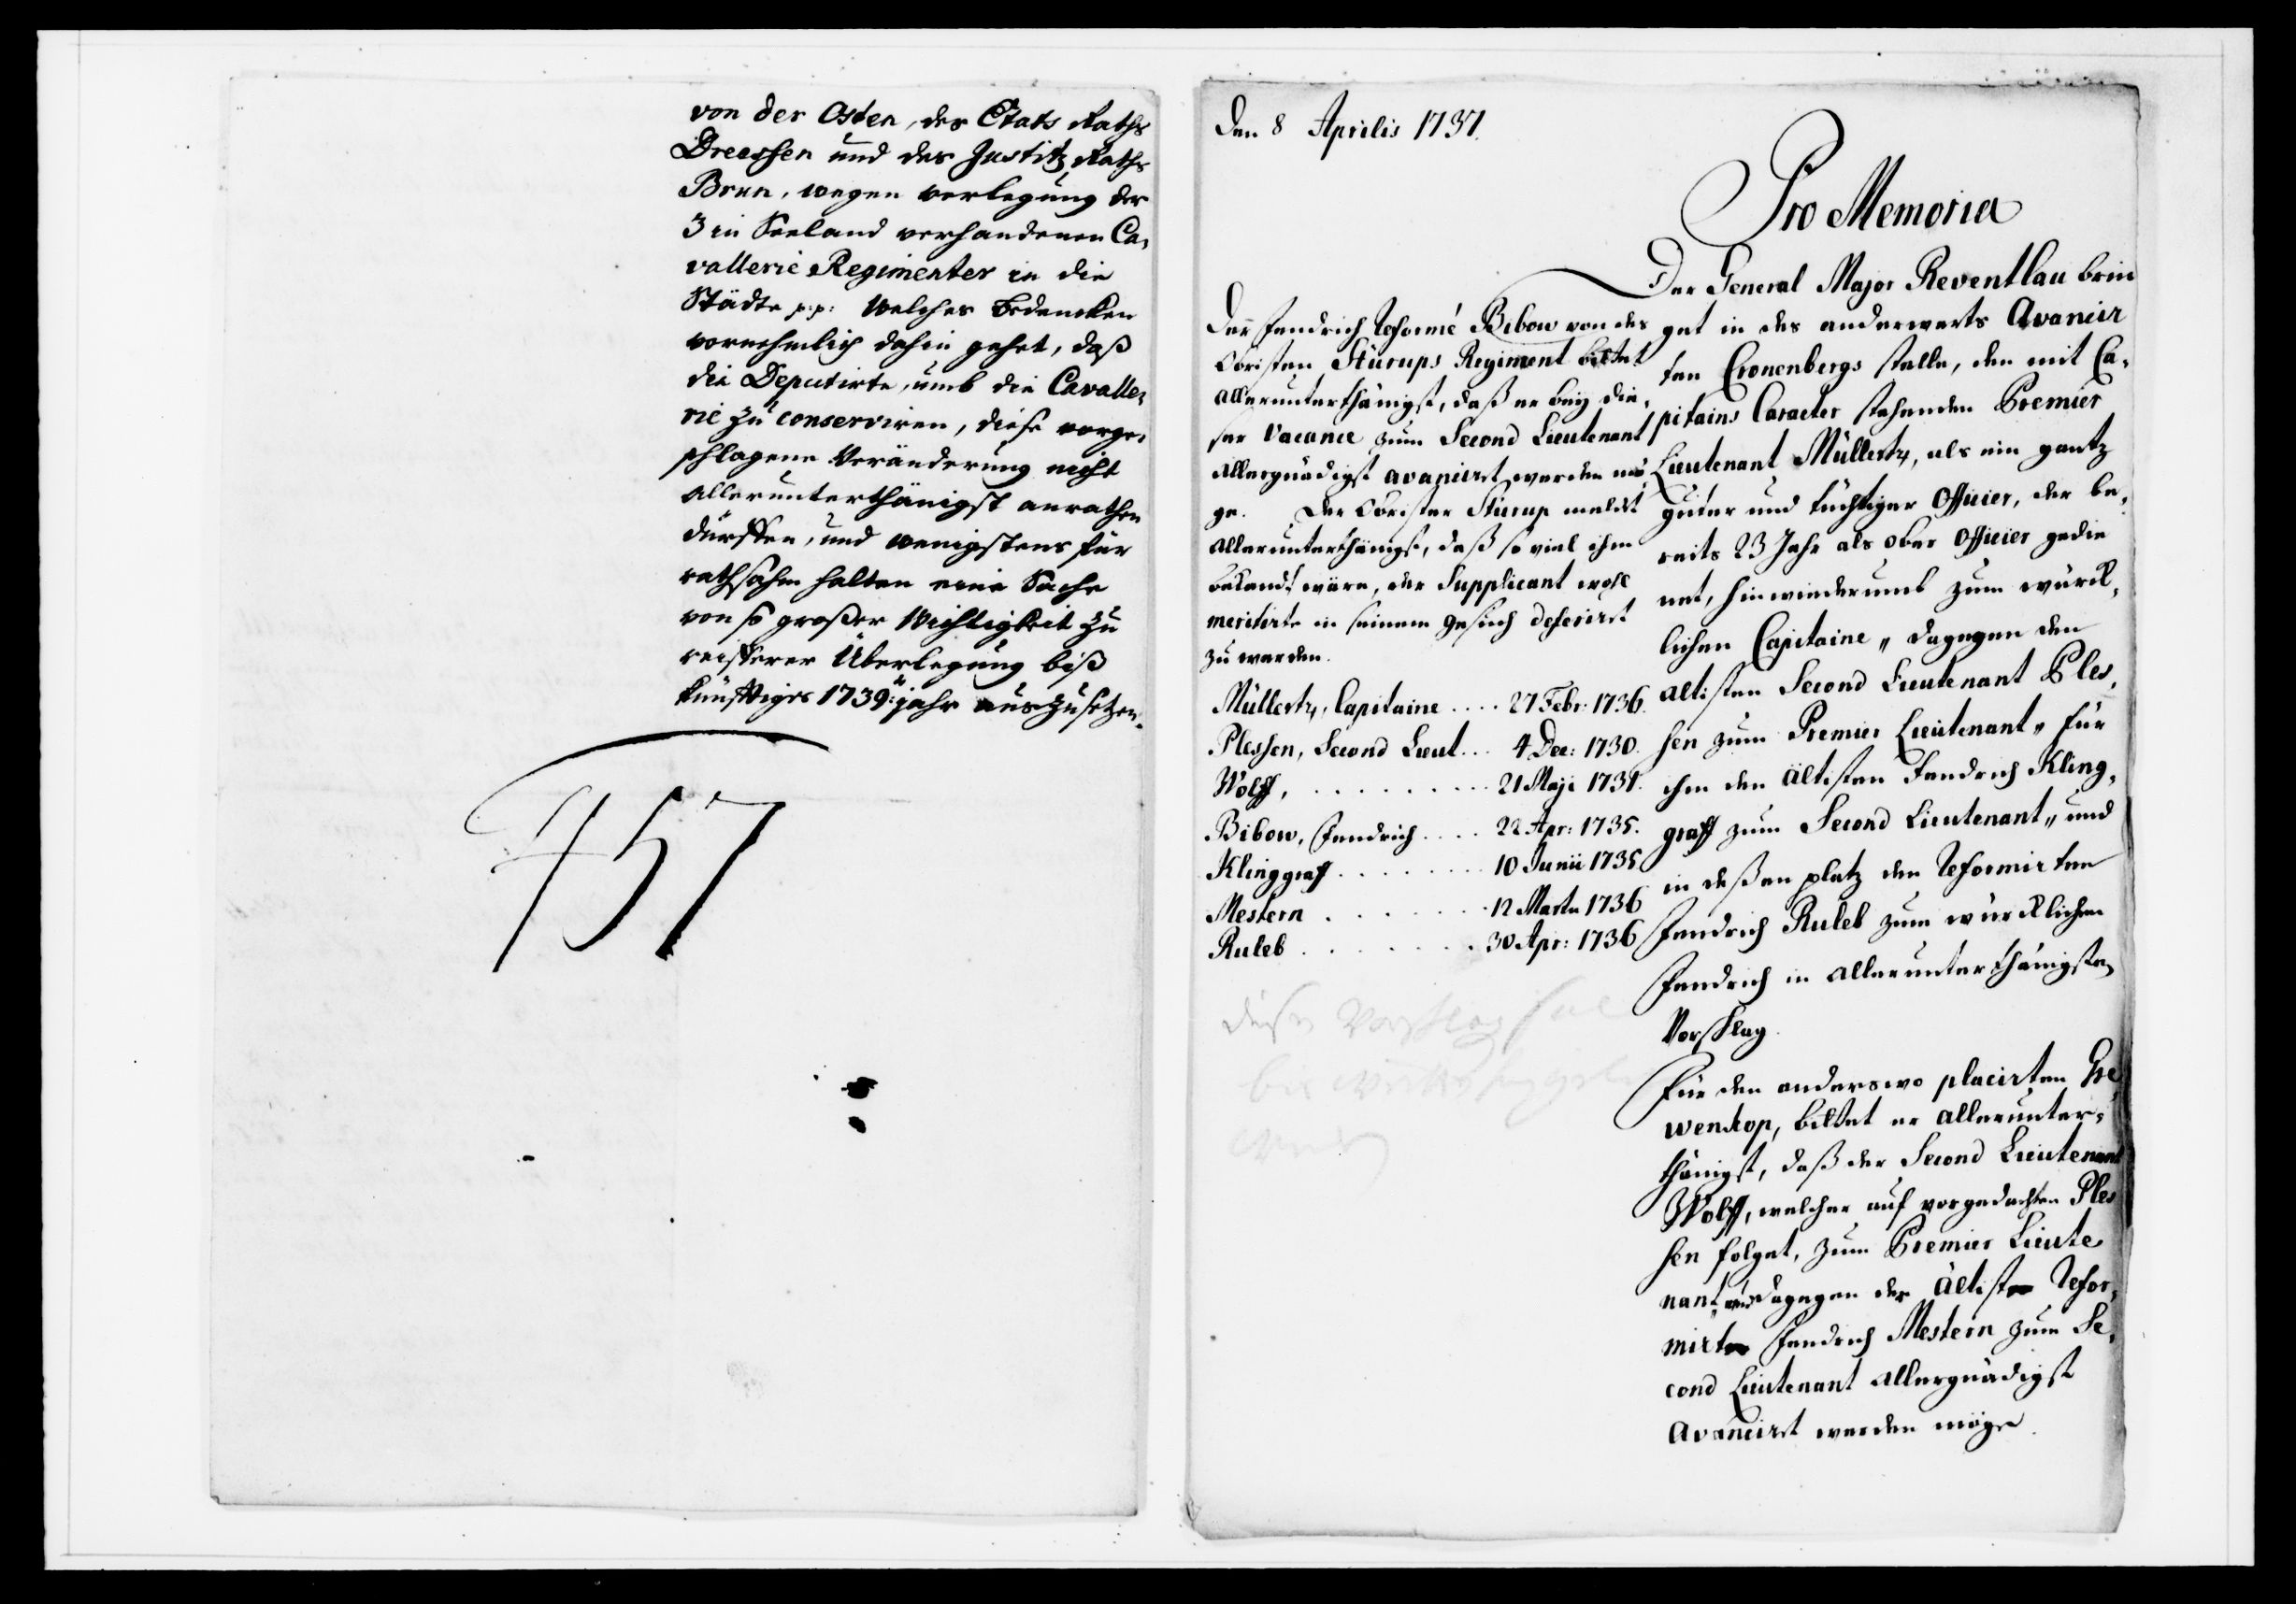 von der Osten, des Etats Raths
Dreessen und des Justitz Raths
Brun, wegen verlegung der
3 in Seeland verhandenen Ca-
vallerie Regimenter in die
Städte p.p: welches bedencken
vornehmlich dahin gehet, daß
die Deputirte, umb die Cavalle-
rie zu conserviren, diese vorge-
schlagene Veränderung nicht
allerunterthänigst anrathen
dürffen, und wenigstens für
rathsahm halten eine Sache
von so großer Wichtigkeit zu
reifferer Überlegung biß
künfftiges 1739:te jahr auszusetzen.
457
Den 8 Aprilis 1737.
Pro Memoria
Der General Major Reventlau brin
get in des anderwerts Avancir
ten Cronenbergs stelle, den mit Ca-
pitains Caracter stehenden Premier
Lieutenant Müllertz, als ein gantz
guter und tüchtiger Officier, der be-
reits 23 Jahr als ober Officier gedie
net, hinwiederumb zum würck-
lichen Capitaine, dagegen den
ältisten Second Lieutenant Ples-
sen zum Premier Lieutenant, für
ihm den ältisten Fendrich Kling-
graff zum Second Lieutenant, und
in deßen platz den Reformirten
Fendrich Ruleb zum würcklichen
Fendrich in allerunterthänigsten
Vorschlag.
Für den anderswo placirten Gre
wenkop, bittet er allerunter-
thänigst, daß der Second Lieutenant
Wolff, welcher auf vorgedachten Ples
sen folget, zum Premier Lieute
nant, und dagegen der ältiste Refor-
mirte Fendrich Mestern zum Se-
cond Lieutenant allergnädigst
Avancirt werden möge.
Der Fendrich Reformé Bibow von des
Obristen Stürups Regiment bittet
allerunterthänigst, daß er bey die-
ser Vacance zum Second Lieutenant
allergnädigst avancirt werden mö-
ge. Der Obrister Stürup meldet
allerunterthänigst, daß so viel ihm
bekandt wäre, der Supplicant wohl
meritirte in seinem gesuch deferirt
zu werden.
Müllertz, Capitaine .... 27 Febr: 1736.
Plessen, Second Lieut... 4 Dec: 1730.
Wolff, ......... 21 Maji 1731.
Bibow, Fendrich .... 22 Apr: 1735.
Klinggraff ....... 10 Junii 1735
Mestern ....... 12 Martii 1736
Ruleb ....... 30 Apr: 1736
dieser Vorschlag